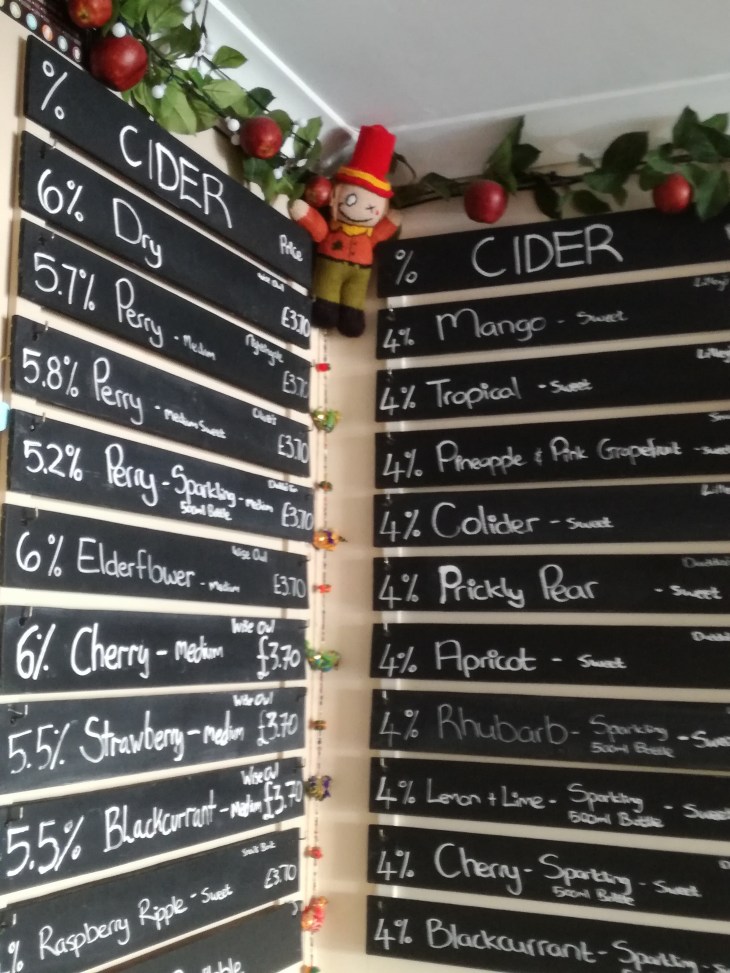 % CIDER Price
6% Dry Wise Owl £3.70
5.7% Perry - Medium £3.70
5.8% Perry - Medium Sweet £3.70
5.2% Perry - Sparkling - Medium £3.70
500ml Bottle
6% Elderflower - Medium Wise Owl £3.70
6% Cherry - Medium Wise Owl £3.70
5.5% Strawberry - medium Wise Owl £3.70
5.5% Blackcurrant - Medium Wise Owl £3.70
% Raspberry Ripple - Sweet £3.70
% CIDER
4% Mango - Sweet
4% Tropical - Sweet
4% Pineapple & Pink Grapefruit - Sweet
4% Colider - Sweet
4% Prickly Pear - Sweet
4% Apricot - Sweet
4% Rhubarb - Sparkling - Swee
500ml Bottle
4% Lemon + Lime - Sparkling - Sweet
500ml Bottle
4% Cherry - Sparkling - Sweet
500ml Bottle
4% Blackcurrant - Sparkling